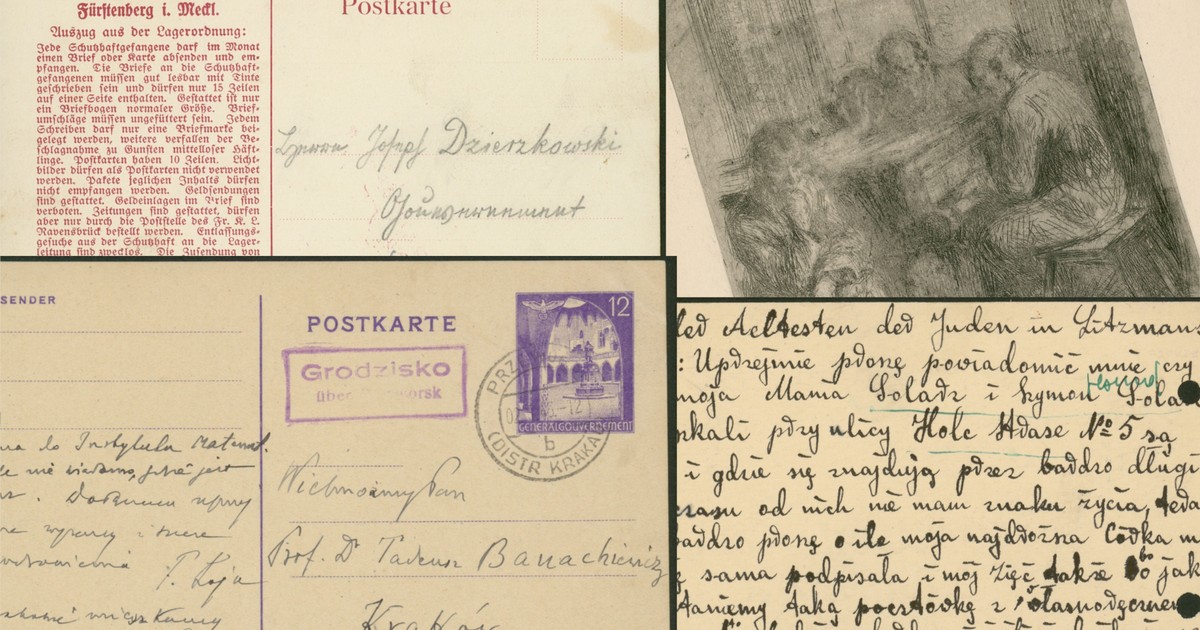 Fürstenberg i. Meckl.
Auszug aus der Lagerordnung:
Jede Schutzhaftgefangene darf im Monat
einen Brief oder Karte absenden und em-
pfangen. Die Briefe an die Schutzhaft-
gefangenen müssen gut lesbar mit Tinte
geschrieben sein und dürfen nur 15 Zeilen
auf einer Seite enthalten. Gestattet ist nur
ein Briefbogen normaler Größe. Brief-
umschläge müssen ungefüttert sein. Jedem
Schreiben darf nur eine Briefmarke bei-
gelegt werden, weitere verfallen der Be-
schlagnahme zu Gunsten mittelloser Häft-
linge. Postkarten haben 10 Zeilen. Licht-
bilder dürfen als Postkarten nicht verwendet
werden. Pakete jeglichen Inhalts dürfen
nicht empfangen werden. Geldsendungen
sind gestattet, Geldeinlagen im Brief sind
verboten. Zeitungen sind gestattet, dürfen
aber nur durch die Poststelle des Fr. K. L.
Ravensbrück bestellt werden. Entlassungs-
gesuche aus der Schutzhaft an die Lager-
leitung sind zwecklos. Die Zusendung von
Postkarte
Herrn Josef Dzierzkowski
Gouvernement
SENDER
POSTKARTE
12
GENERALGOUVERNEMENT
Grodzisko
über
PRZ
b
(DISTR KRAKA
na do Instytutu Matemat.
nie wiadomo, gdzie jest
Wielmożny Pan
Prof. Dr Tadeusz Banachiewicz
Kraków
Aeltesten der Juden in Litzmans
: Uprzejmie proszę powiadomić mnie czy
moja Mama Soladz i Szymon
przy ulicy Holc Strase № 5 są
i gdzie się znajdują przez bardzo długi
czasu od nich nie mam znaku życia, teda
bardzo proszę o ile moja najdrożna Córka m
sama podpisała i mój Zięć także bo jak
taką pocztówkę z własnoręcznem